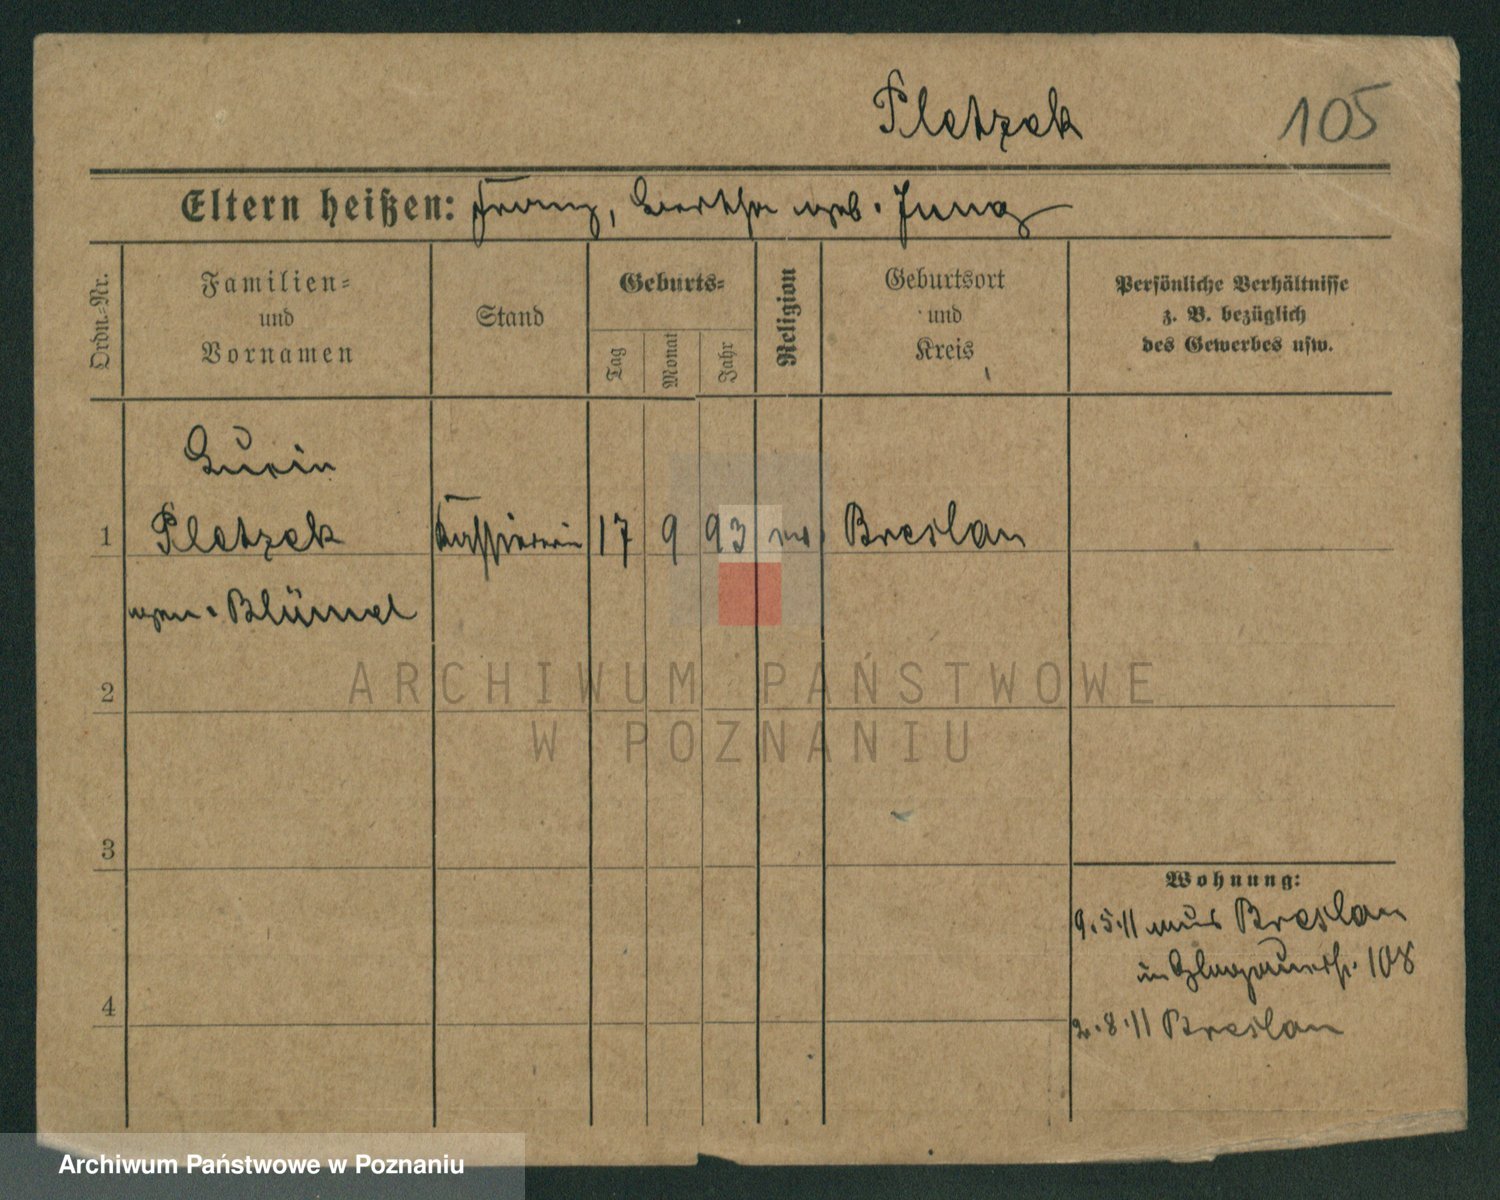 Pletzek 105
Eltern heißen: Franz, Bertha geb. Jung
Ordn.-Nr.
Familien-
und
Vornamen
Stand
Geburts-
Tag
Monat
Jahr
Religion
Geburtsort
und
Kreis
Persönliche Verhältnisse
z. B. bezüglich
des Gewerbes usw.
1 Pletzek Kassiererin 17 9 93 ev. Breslau
gen. Blümel
2
3
4
Wohnung:
9.5.11 aus Breslau
in Glogauerstr. 108
2.8.11 Breslau
ARCHIWUM PAŃSTWOWE
W POZNANIU
Archiwum Państwowe w Poznaniu